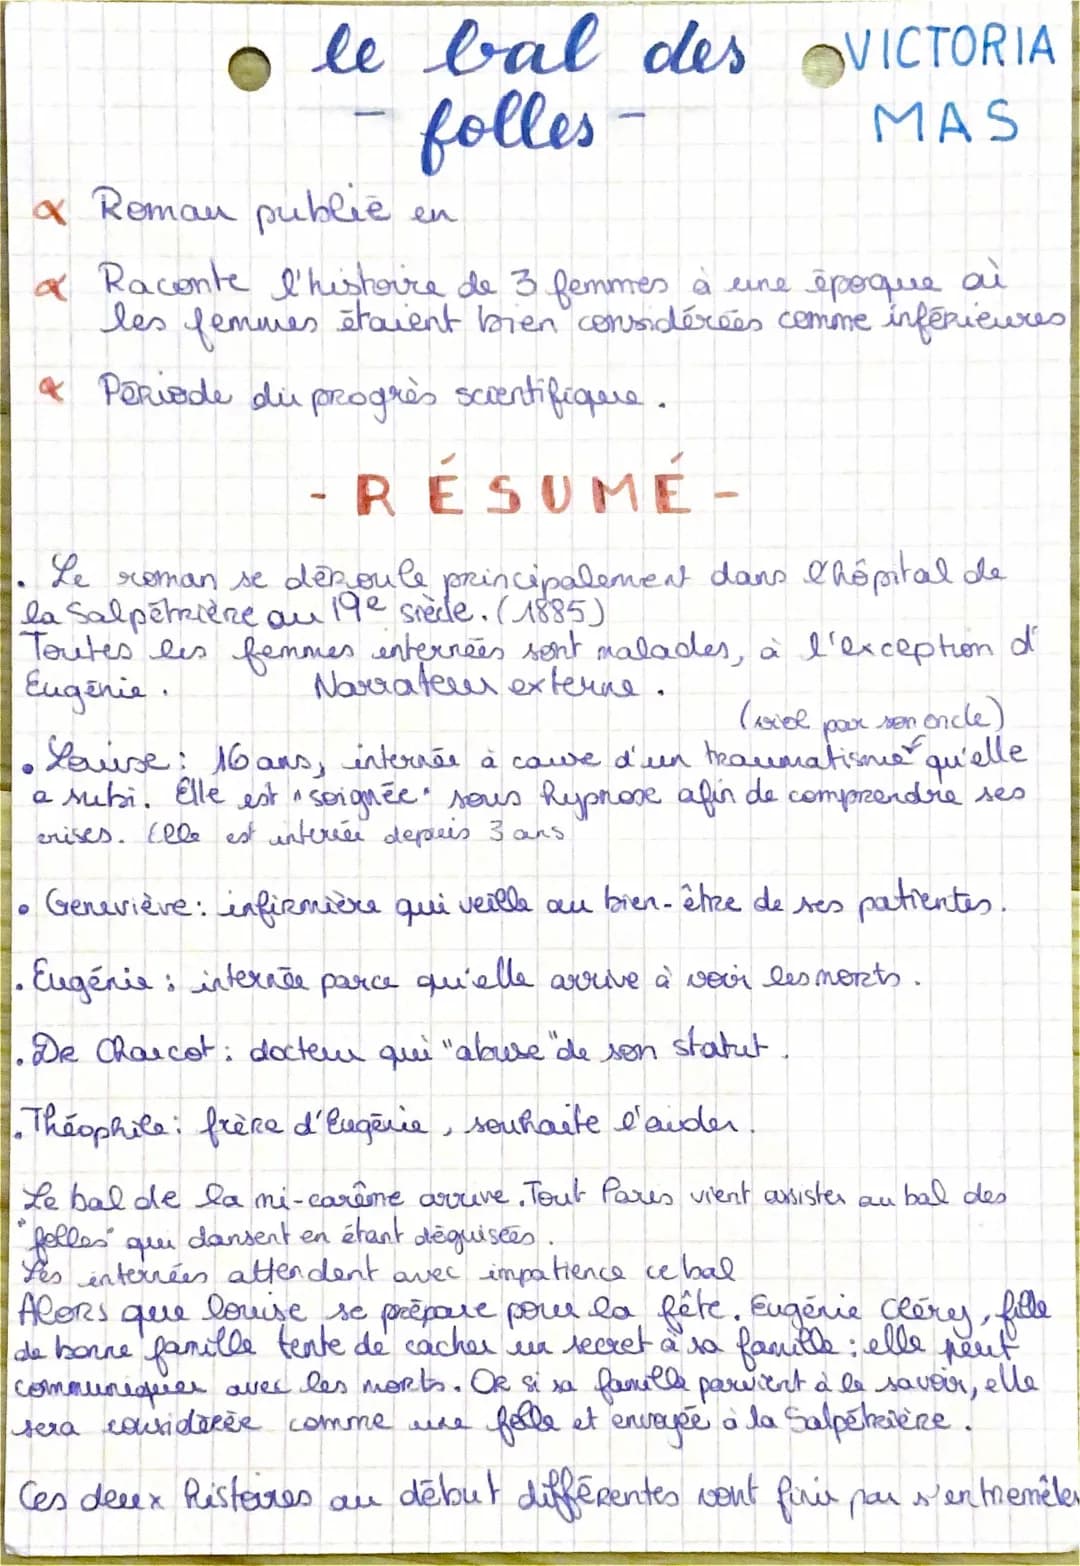 le bal des
- folles -
VICTORIA
MAS
∝ Roman publié en
∝ Raconte l'histoire de 3 femmes à une époque où
les femmes étaient bien considérées comme inférieures
∝ Période du progrès scientifique.
- RÉSUMÉ -
. Le roman se déroule principalement dans l'hôpital de
la Salpêtrière au 19e siècle. (1885)
Toutes les femmes internées sont malades, à l'exception d'
Eugénie. Narrateur externe.
(viol par son oncle)
• Louise : 16 ans, internée à cause d'un traumatisme qu'elle
a subi. Elle est "soignée" sous hypnose afin de comprendre ses
crises. Elle est internée depuis 3 ans
• Geneviève : infirmière qui veille au bien-être de ses patientes.
. Eugénie : internée parce qu'elle arrive à voir les morts.
. DR Charcot : docteur qui "abuse" de son statut.
. Théophile : frère d'Eugénie, souhaite l'aider.
Le bal de la mi-carême arrive. Tout Paris vient assister au bal des
"folles" qui dansent en étant déguisées.
Les internées attendent avec impatience ce bal
Alors que Louise se prépare pour la fête, Eugénie Cléry, fille
de bonne famille tente de cacher un secret à sa famille : elle peut
communiquer avec les morts. Or si sa famille parvient à le savoir, elle
sera considérée comme une folle et envoyée à la Salpêtrière.
Ces deux histoires au début différentes vont finir par s'entremêler